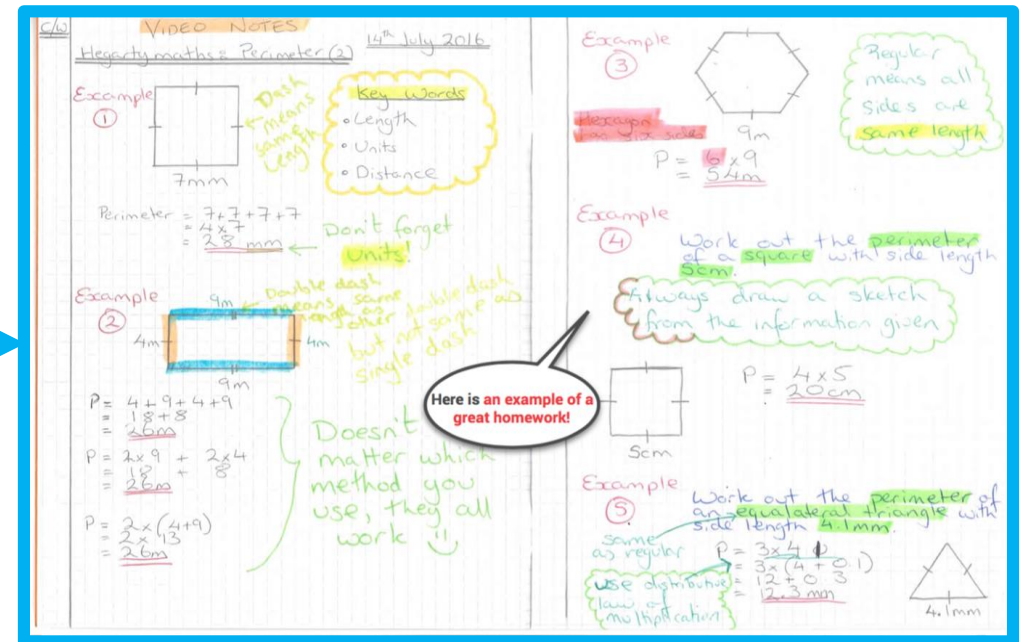 C/W
VIDEO NOTES
Hegartymaths: Perimeter (2)
14th July 2016
Example
1
Dash
means
same
length
7mm
Key Words
• Length
• Units
• Distance
Perimeter = 7+7+7+7
= 4x7
= 28 mm
Don't forget
units!
Example
2
9m
4m
4m
9m
Double dash
means same
length as
other double dash
but not same as
single dash
P = 4+9+4+9
= 18+8
= 26m
P = 2x9 + 2x4
= 18 + 8
= 26m
P = 2x(4+9)
= 2x13
= 26m
Doesn't
matter which
method you
use, they all
work
Example
3
Hexagon
has six sides
9m
Regular
means all
sides are
same length
P = 6x9
= 54m
Example
4
Work out the perimeter
of a square with side length
5cm.
Always draw a sketch
from the information given
5cm
P = 4x5
= 20cm
Here is an example of a
great homework!
Example
5
Work out the perimeter of
an equalateral triangle with
side length 4.1mm.
same
as regular
use distributive
law of
multiplication
P = 3x4.1
= 3x(4+0.1)
= 12+0.3
= 12.3mm
4.1mm